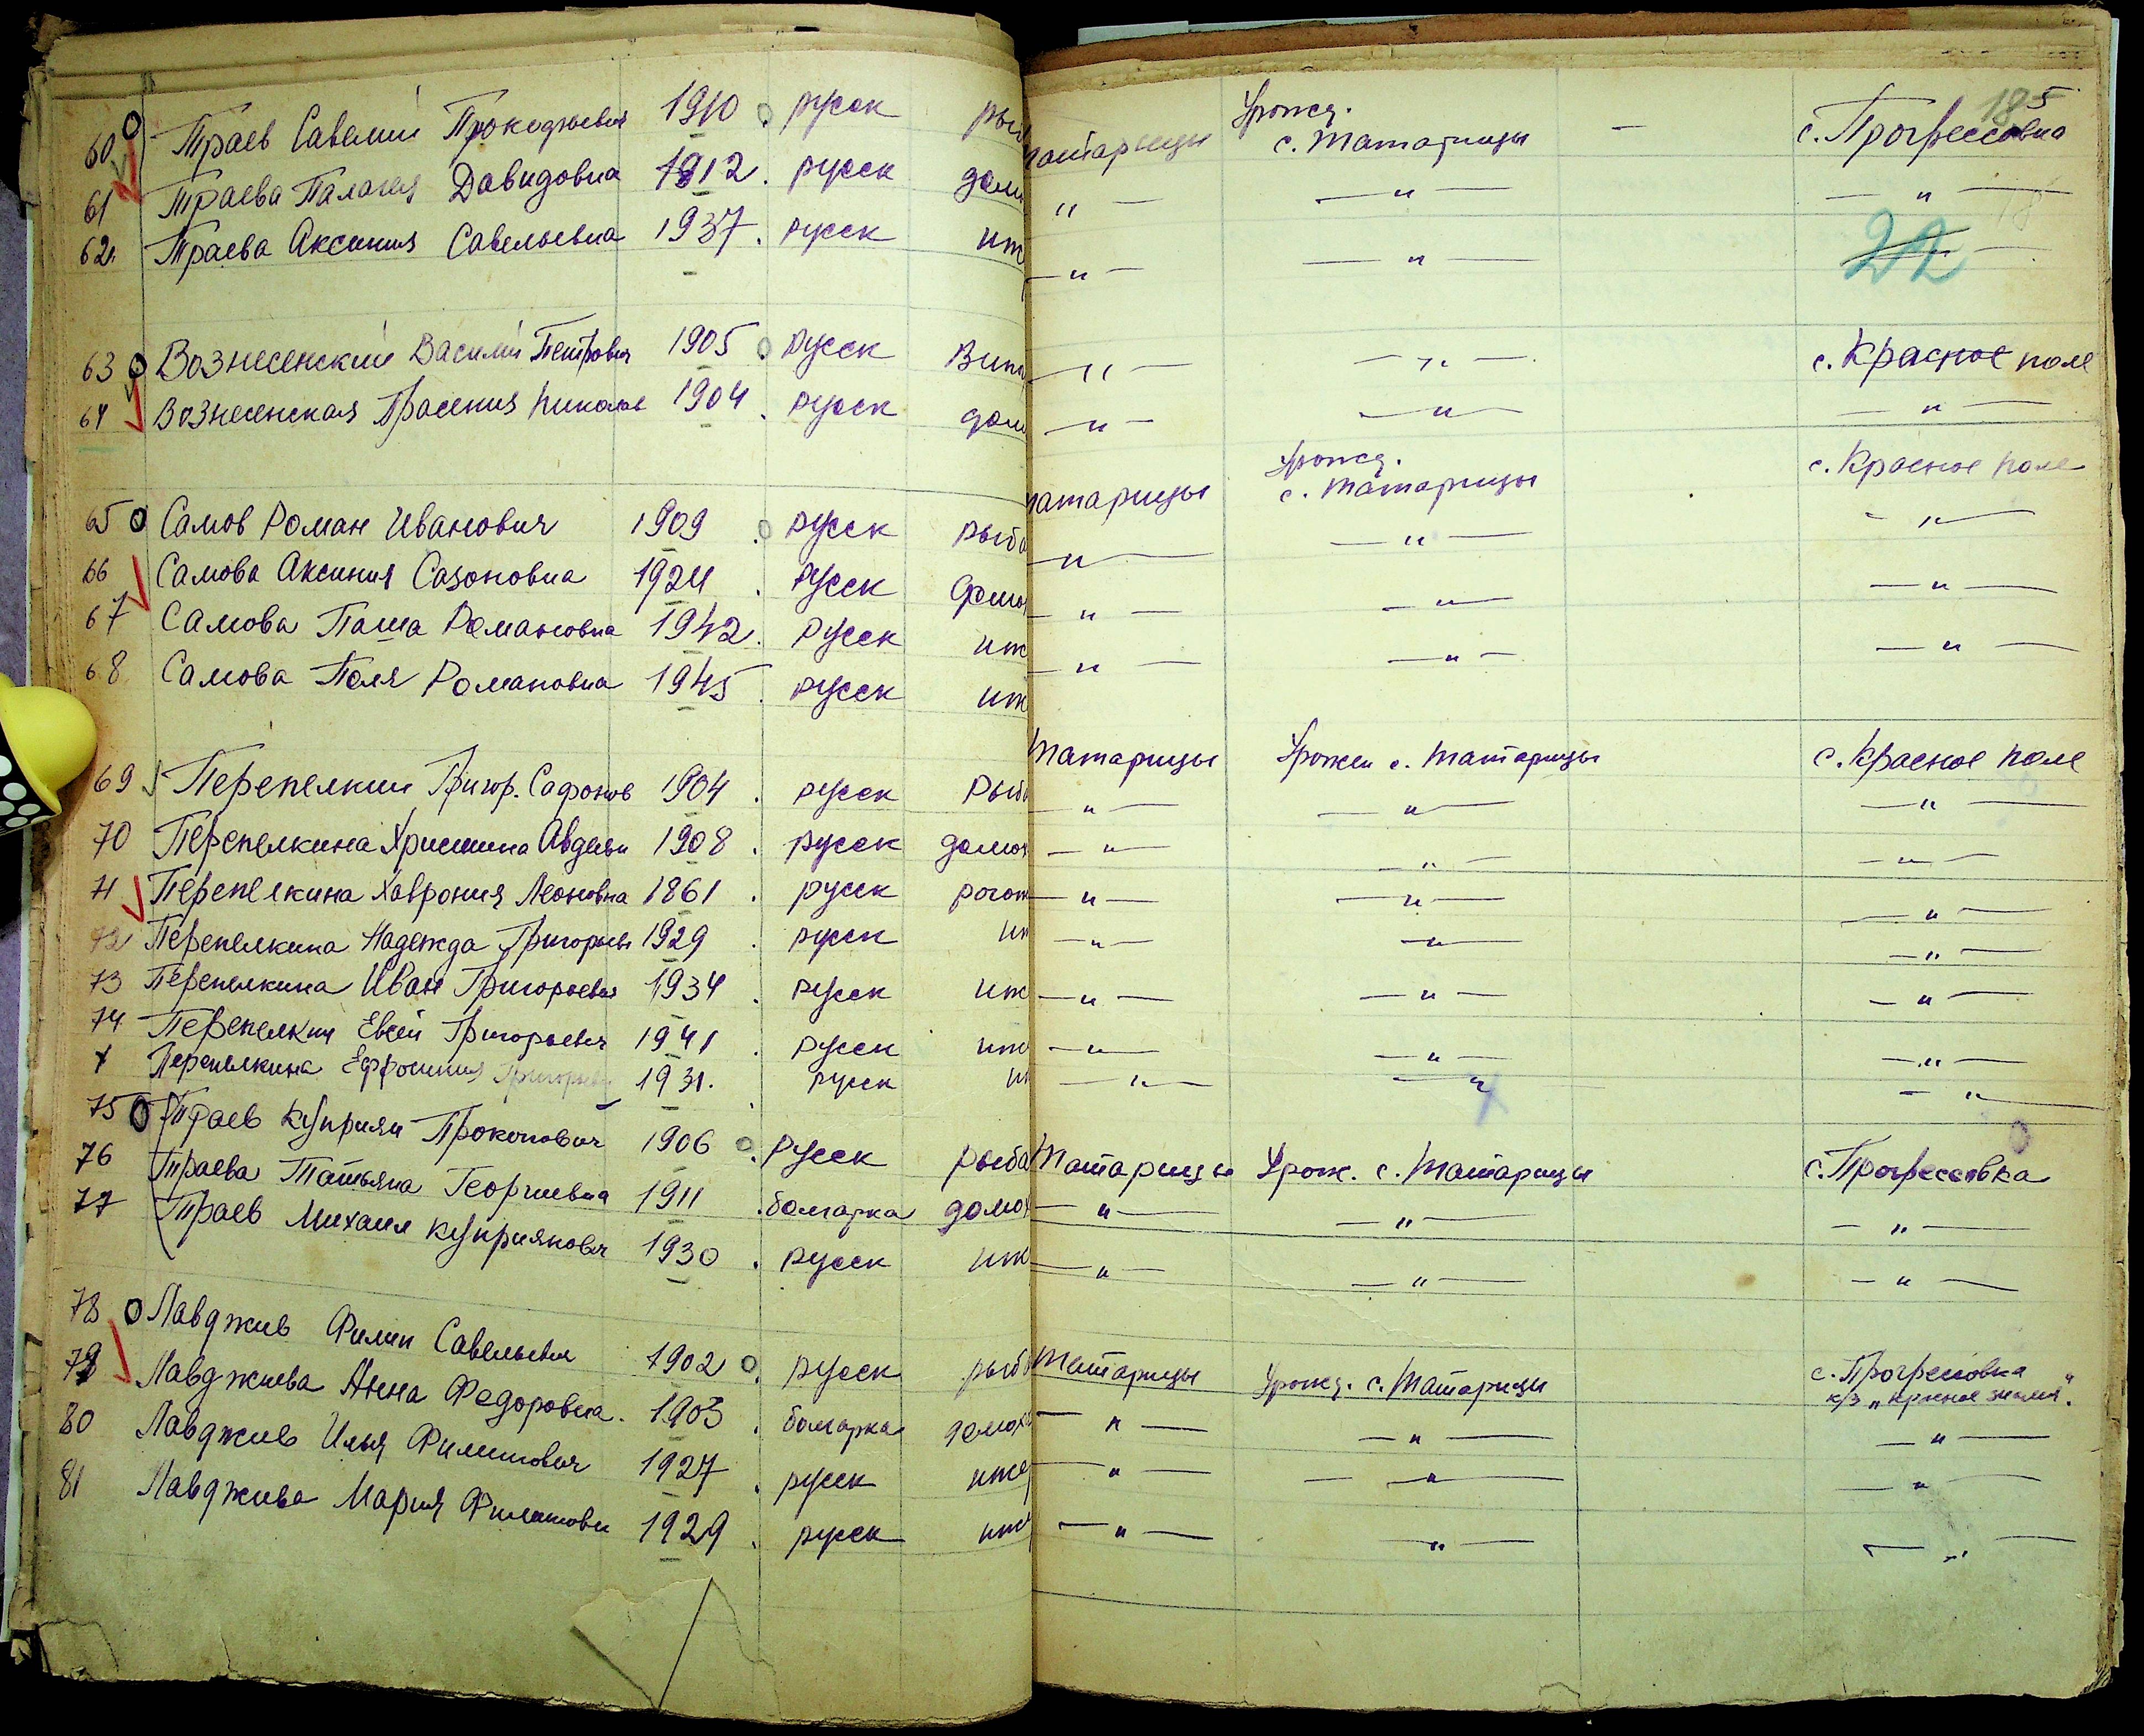 185
60 Траев Савелий Прокофьевич 1910 русск рыб
61 Траева Палагея Давидовна 1912 русск дом
62 Траева Аксиния Савельевна 1937 русск иж
63 Вознесенский Василий Петрович 1905 русск Вин
64 Вознесенская Прасения Николаев 1904 русск дом
65 Самов Роман Иванович 1909 русск рыба
66 Самова Аксиния Сазоновна 1924 русск домох
67 Самова Паша Романовна 1942 русск иж
68 Самова Поля Романовна 1945 русск иж
69 Перепелкин Григор. Сафонов 1904 русск Рыб
70 Перепелкина Христина Авдеевн 1908 русск домох
71 Перепелкина Хаврония Леоновна 1861 русск
72 Перепелкина Надежда Григорьев 1929 русск иж
73 Перепелкина Иван Григорьевич 1934 русск иж
74 Перепелкин Евсей Григорьевич 1941 русск иж
х Перепелкина Ефросиния Григорьев 1931. русск иж
75 Траев Куприян Прокопович 1906 русск рыба
76 Траева Татьяна Георгиевна 1911 болгарка домох
77 Траев Михаил Куприянович 1930 русск иж
78 Павджив Филип Савельевич 1902 русск рыб
79 Павджива Анна Федоровна. 1903 болгарка домох
80 Павджив Илья Филипович 1927 русск иж
81 Павджива Мария Филиповн 1929 русск иж
татарицы Урожд. с. Татарицы — с. Прогрессовка
— " — — " — — " —
— " — — " — — " —
22
— " — — " — с. Красное поле
— " — — " — — " —
татарицы Урожд. с. Татарицы с. Красное поле
— " — — " — — " —
— " — — " — — " —
— " — — " — — " —
Татарицы Урожен с. Татарицы с. Красное поле
— " — — " — — " —
— " — — " — — " —
— " — — " — — " —
— " — — " — — " —
— " — — " — — " —
— " — — " — — " —
— " — — " — — " —
Татарицы Урож. с. Татарицы с. Прогрессовка
— " — — " — — " —
— " — — " — — " —
Татарицы Урожд. с. Татарицы с. Прогресовка
к/з "
— " — — " — — " —
— " — — " — — " —
— " — — " — — " —